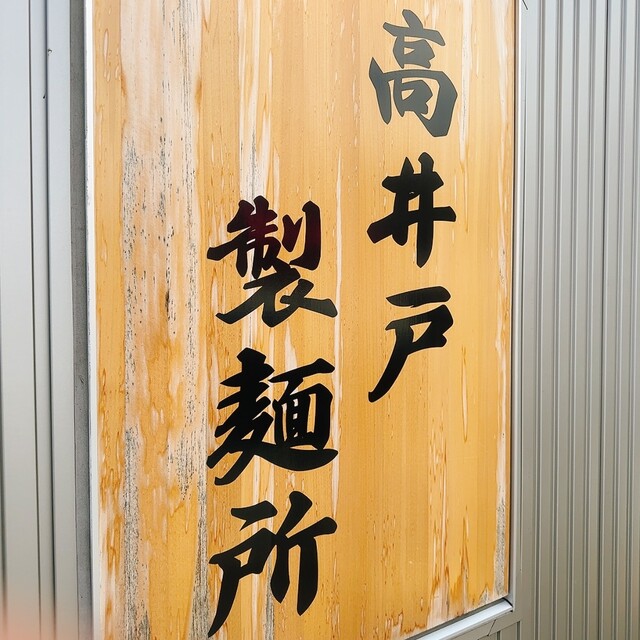 高井戸
製麺所